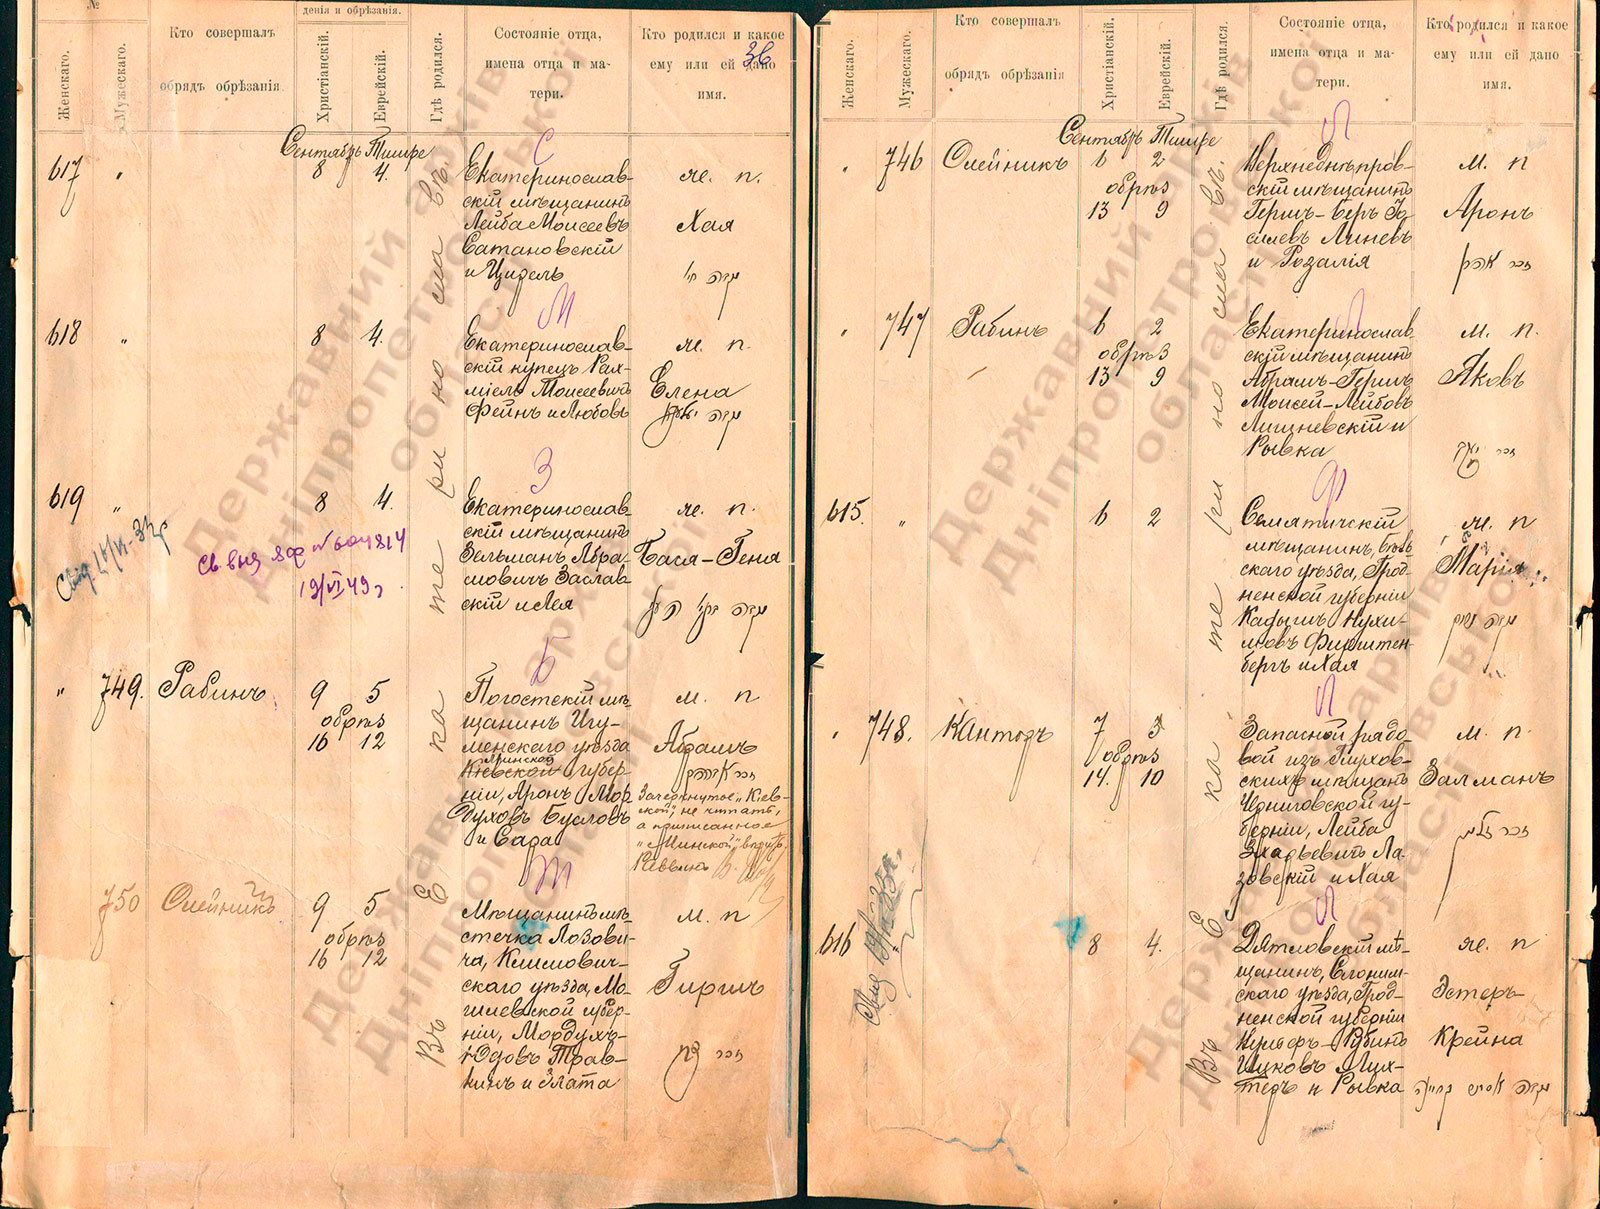 №
Женскаго.
Мужескаго.
Кто совершалъ
обрядъ обрѣзанія
денія и обрѣзанія.
Христіанскій.
Еврейскій.
Гдѣ родился.
Состояніе отца,
имена отца и ма-
тери.
Кто родился и какое
ему или ей дано
имя.
36
Сентябрь Тишре
617 " 8 4.
С
Екатеринослав-
скій мѣщанинъ
Лейба Моисеевъ
Сатановскій
и Цизель
ж. п.
Хая
618 " 8 4.
М
Екатеринослав-
скій купецъ Рах-
міель Моисеевичъ
Фейнъ и Любовь
ж. п.
Елена
619 " 8 4.
З
Екатеринослав-
скій мѣщанинъ
Зельманъ Абра-
мовичъ Заслав-
скій и Лея
ж. п.
Бася-Геня
19/VI 49г
" 749. Рабинъ 9 5
обрѣз
16 12
Б
Погостскій мѣ-
щанинъ Игу-
менскаго уѣзда
Минской
Кіевской губер-
ніи, Аронъ Мор
духовъ Бусловъ
и Сара
м. п
Абрамъ
זכר אברהם
Зачеркнутое „Кіев-
ской" не читать,
а приписанное
„Минской" вѣрить.
Раввинъ
750 Олейникъ 9 5
обрѣз
16 12
Т
Мѣщанинъ мѣ-
стечка Лозови-
ча, Климович-
скаго уѣзда, Мо-
гилевской губер-
ніи, Мордухъ-
Юдовъ Трав-
кинъ и Злата
м. п
Гиршъ
Въ Екатеринославѣ
Женскаго.
Мужескаго.
Кто совершалъ
обрядъ обрѣзанія
Христіанскій.
Еврейскій.
Гдѣ родился.
Состояніе отца,
имена отца и ма-
тери.
Кто родился и какое
ему или ей дано
имя.
Сентябрь Тишре
" 746 Олейникъ 6 2
обрѣз
13 9
Л
Верхнеднѣпров-
скій мѣщанинъ
Гершъ-Беръ Іо
силевъ Линевъ
и Розалія
м. п
Аронъ
זכר אהרן
" 747 Рабинъ 6 2
обрѣз
13 9
Л
Екатеринослав-
скій мѣщанинъ
Абрамъ-Гершъ
Моисей-Лейбовъ
Лишневскій и
Рывка
м. п.
Яковъ
זכר יעקב
615. " 6 2
Ф
Семятичскій
мѣщанинъ, Бѣль
скаго уѣзда, Грод-
ненской губерніи
Кадышъ Нухи-
мовъ Фирштен-
бергъ и Хая
ж. п
Марія
" 748. Канторъ 7 3
обрѣз
14. 10
Л
Запасной рядо-
вой изъ Глухов-
скихъ мѣщанъ
Черниговской гу-
берніи, Лейба
Лa-
зовскій и Хая
м. п.
Залманъ
זכר זלמן
616 " 8 4.
Л
Дятловскій мѣ-
щанинъ, Слоним-
скаго уѣзда, Грод-
ненской губерніи
Рубинъ
Ицковъ Лих-
теръ и Рывка
ж. п
Эстеръ-
Крейна
Въ Екатеринославѣ
Державний архів
Дніпропетровської
області